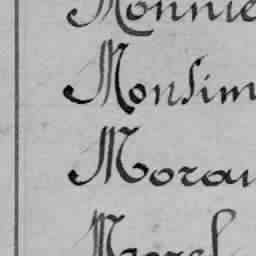 Monnie
Monsim
Morau
Morel